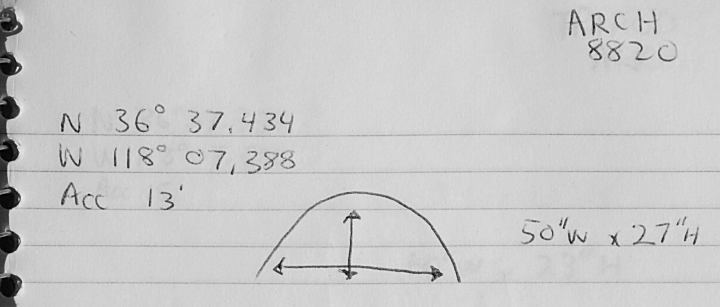 ARCH
8820
N 36° 37.434
W 118° 07,388
Acc 13'
50"W x 27"H